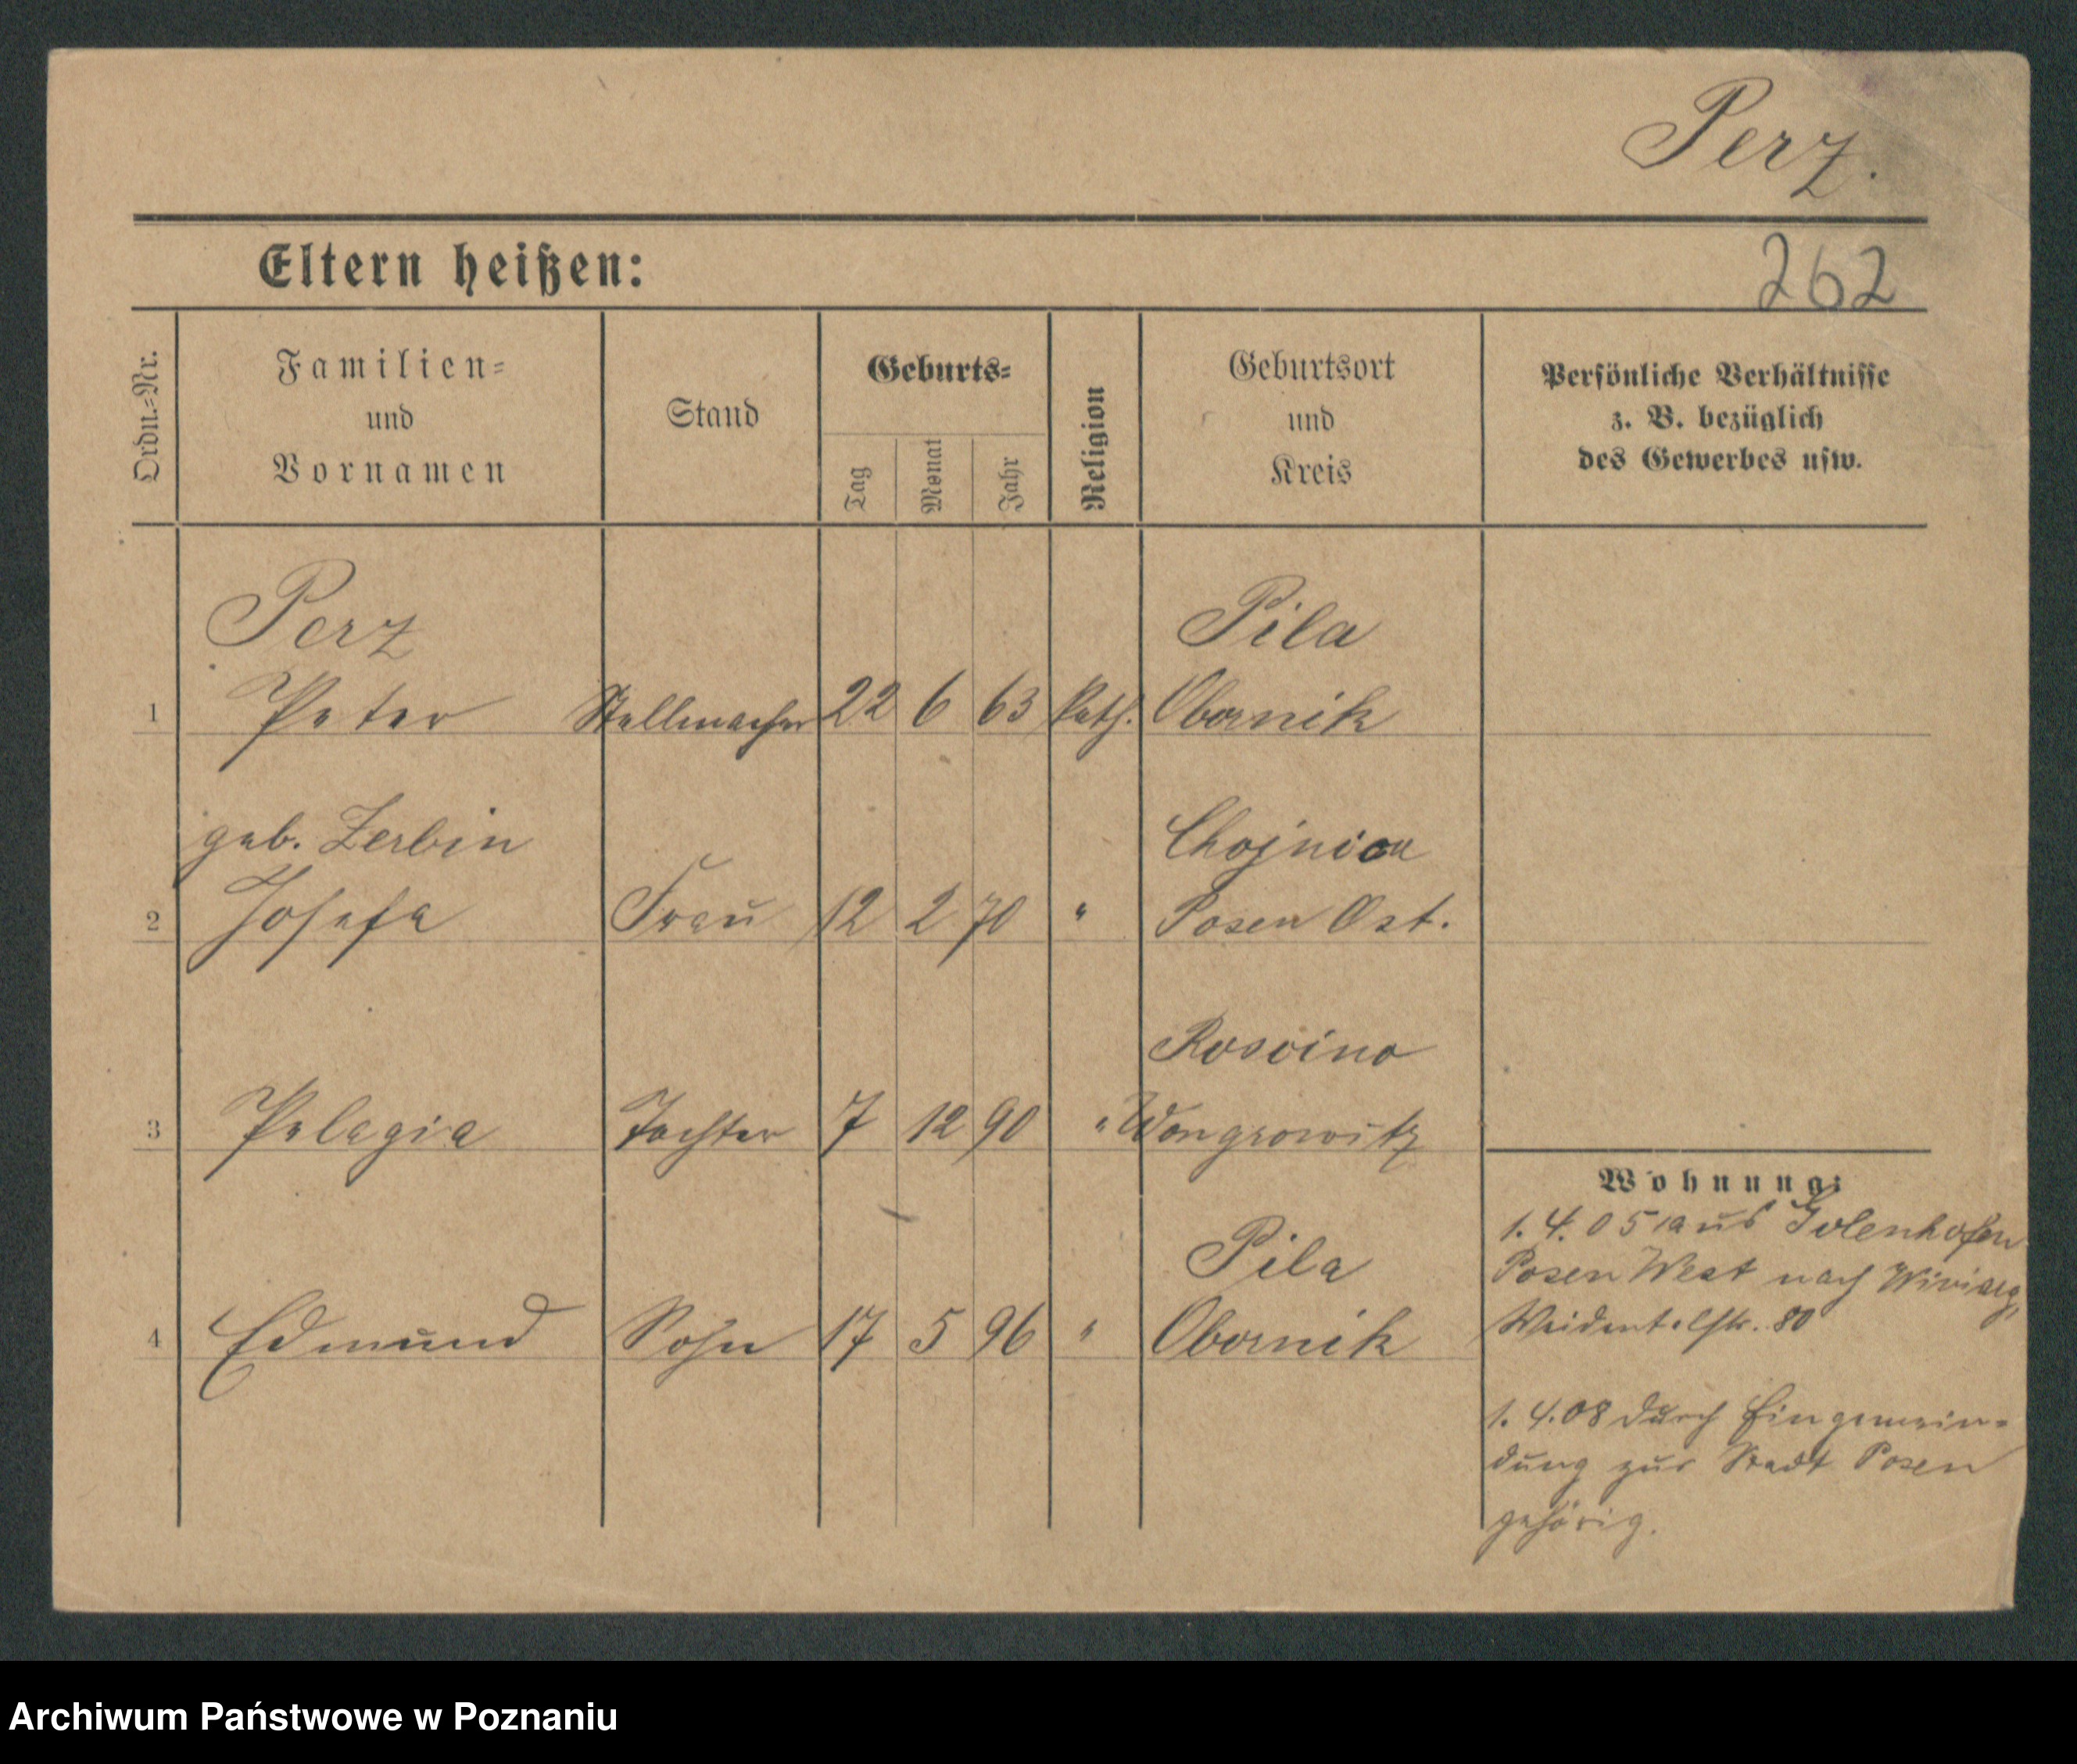 Perz.
Eltern heißen:
262
Ordn.-Nr.
Familien-
und
Vornamen
Stand
Geburts-
Tag
Monat
Jahr
Religion
Geburtsort
und
Kreis
Persönliche Verhältnisse
z. B. bezüglich
des Gewerbes usw.
Perz
Pila
1 Peter Stellmacher 22 6 63 kath. Obornik
geb. Zerbin
Chojnica
2 Josefa Frau 12 2 70 " Posen Ost.
Roscino
3 Pelagia Tochter 7 12 90 " Wongrowitz
Pila
4 Edmund Sohn 17 5 96 " Obornik
Wohnung:
1. 4. 05 aus Golenhofen
Posen West nach
80
1. 4. 08 durch Eingemein-
dung zur Stadt Posen
gehörig.
Archiwum Państwowe w Poznaniu